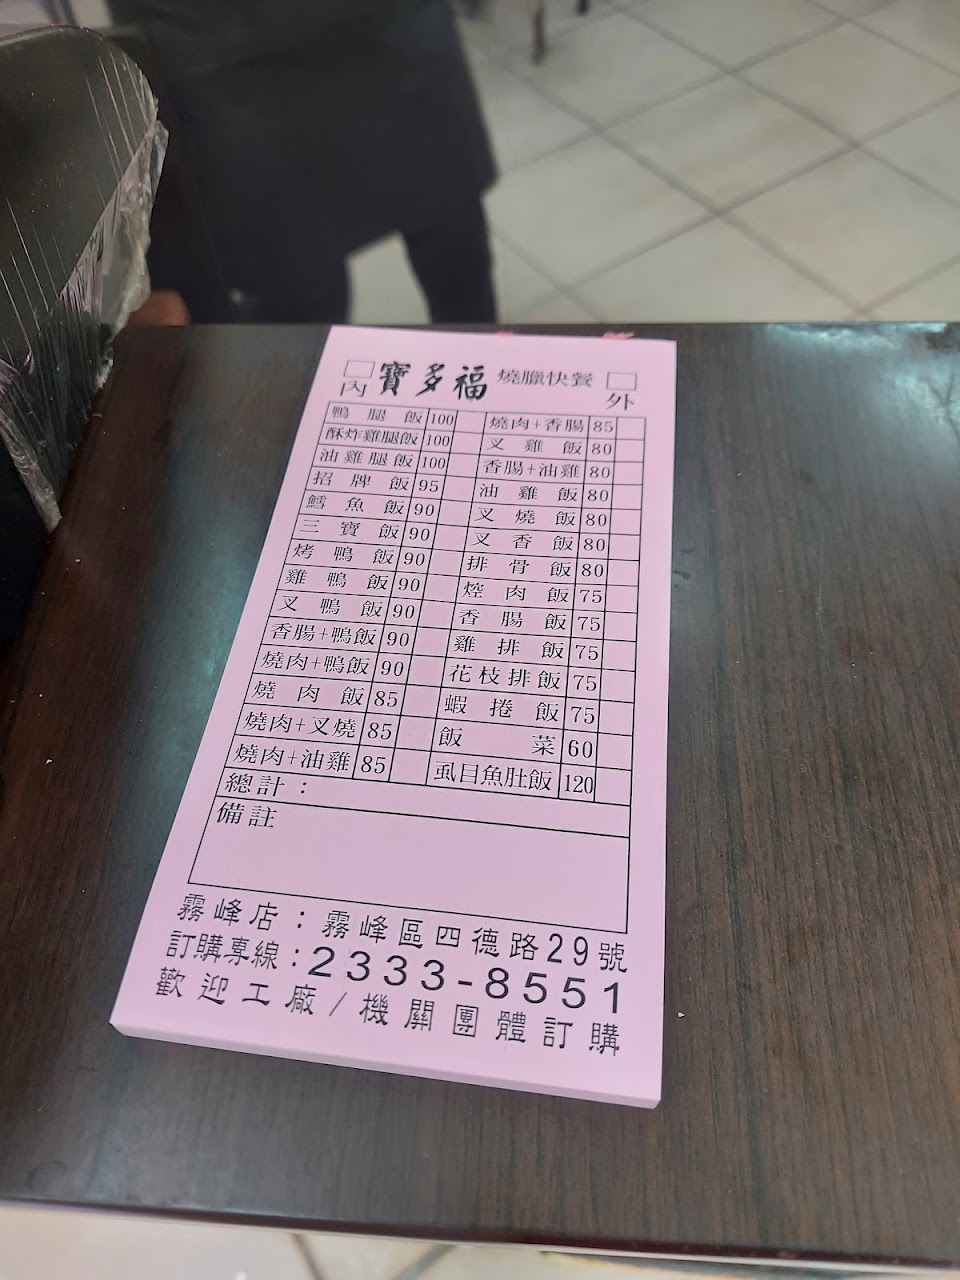 內 寶多福 燒臘快餐 外
鴨腿飯 100 燒肉+香腸 85
酥炸雞腿飯 100 叉雞飯 80
油雞腿飯 100 香腸+油雞 80
招牌飯 95 油雞飯 80
鱈魚飯 90 叉燒飯 80
三寶飯 90 叉香飯 80
烤鴨飯 90 排骨飯 80
雞鴨飯 90 焢肉飯 75
叉鴨飯 90 香腸飯 75
香腸+鴨飯 90 雞排飯 75
燒肉+鴨飯 90 花枝排飯 75
燒肉飯 85 蝦捲飯 75
燒肉+叉燒 85 飯菜 60
燒肉+油雞 85 虱目魚肚飯 120
總計：
備註
霧峰店：霧峰區四德路29號
訂購專線：2333-8551
歡迎工廠/機關團體訂購